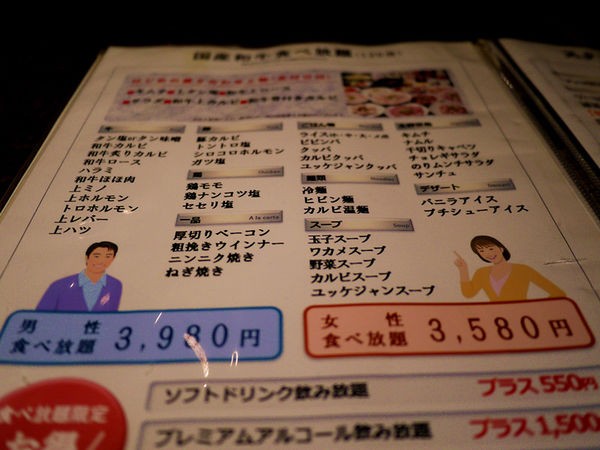 国産和牛食べ放題
■キムチ ■上タン塩 ■和牛上ロース
■サラダ ■和牛上カルビ ■和牛骨付きカルビ
牛
タン塩orタン味噌
和牛カルビ
和牛炙りカルビ
和牛ロース
ハラミ
和牛ほほ肉
上ミノ
上ホルモン
トロホルモン
上レバー
上ハツ
豚
豚カルビ
トントロ塩
シロコロホルモン
ガツ塩
鶏 Chicken
鶏モモ
鶏ナンコツ塩
セセリ塩
一品 A la carte
厚切りベーコン
粗挽きウインナー
ニンニク焼き
ねぎ焼き
ごはん物
ライス(小・中・大)
ビビンバ
クッパ
カルビクッパ
ユッケジャンクッパ
麺類 Noodles
冷麺
ビビン麺
カルビ温麺
スープ Soup
玉子スープ
ワカメスープ
野菜スープ
カルビスープ
ユッケジャンスープ
キムチ
ナムル
千切りキャベツ
チョレギサラダ
のりムンチサラダ
サンチュ
デザート Dessert
バニラアイス
プチシューアイス
男性
食べ放題 3,980円
女性
食べ放題 3,580円
ソフトドリンク飲み放題 プラス550円
プレミアムアルコール飲み放題 プラス1,500
食べ放題限定